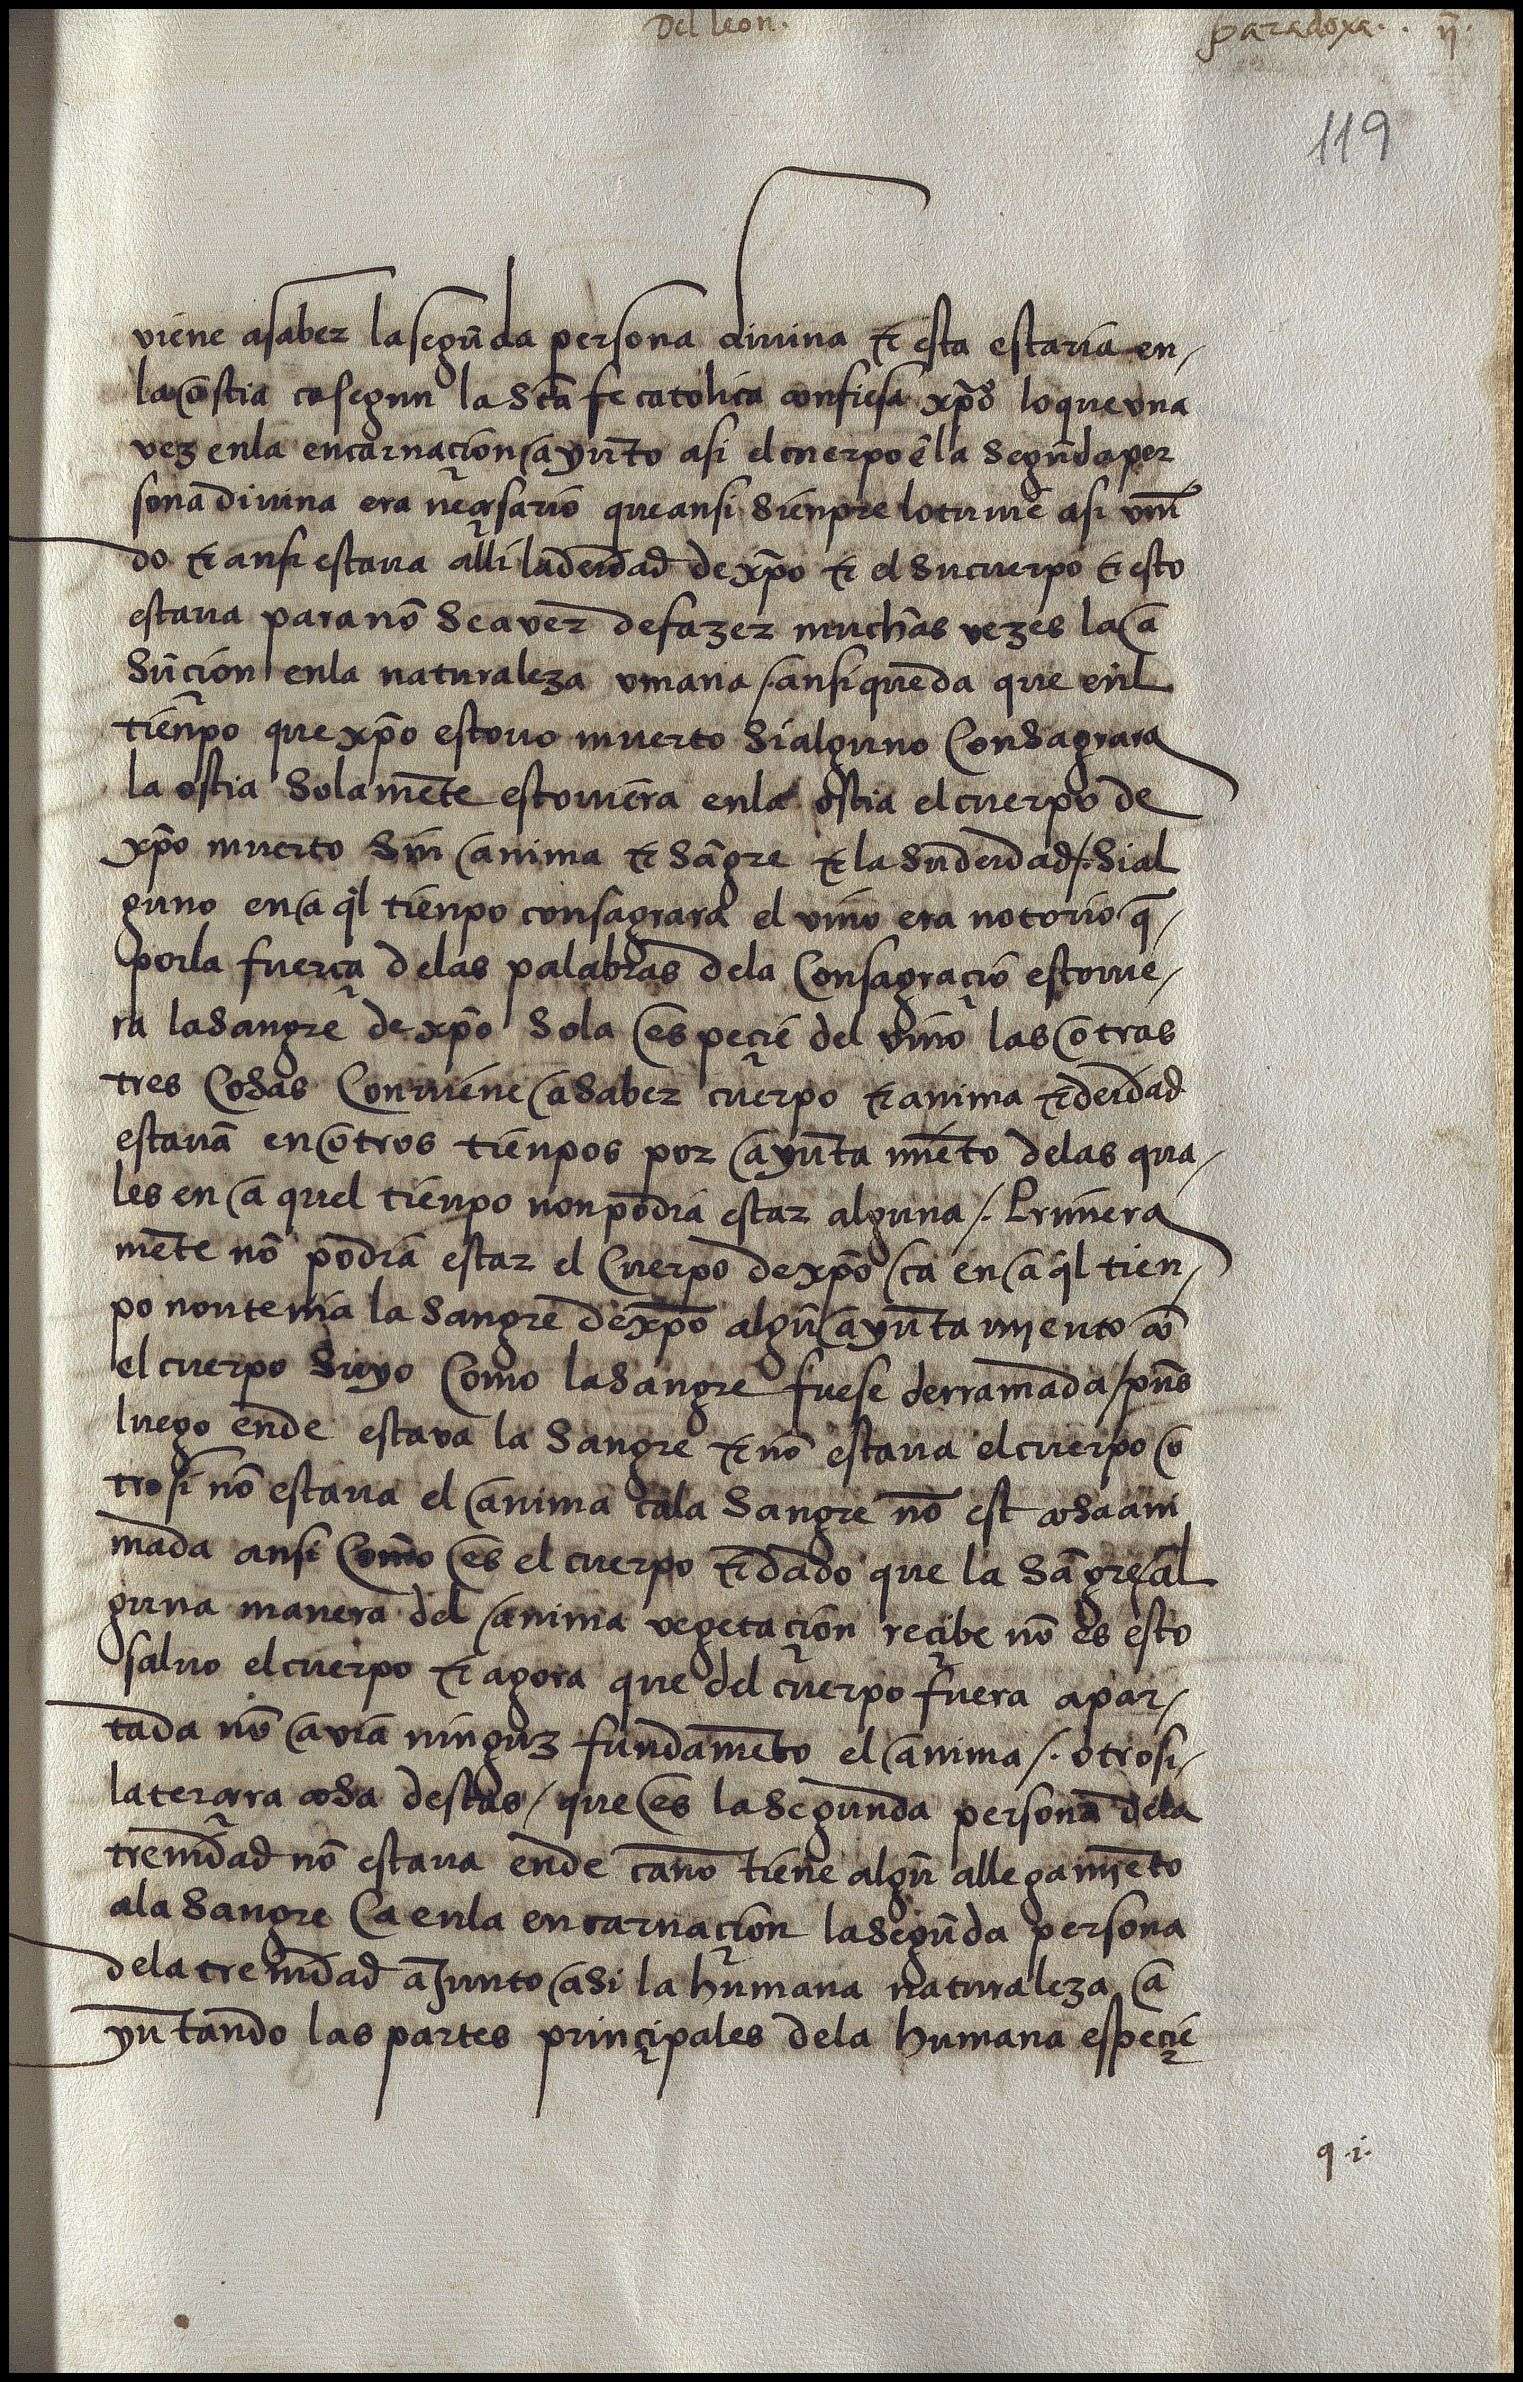 Del leon.
paradoxa. . ii.
119
viene asaber la segũda persona diuina & esta estaria en/
la ostia ca segun la Scã fe catolica confiesa xp̃o lo que vna
vez enla encarnaçion ayũto asi el cuerpo ẽ la Segũda per
sona diuina era neçesario que ansi Sienpre lo tuuie asi vni
do & ansi estaua alli la deidad de xp̃o & el Su cuerpo & esto
estaua para nõ Se aver de fazer muchas vezes la a
Sũcion enla naturaleza vmana /. ansi queda que enl
tienpo que xp̃o estouo muerto Si alguno Consagrara
la ostia Sola mẽte estouiera enla ostia el cuerpo de
xp̃o muerto Sin anima & Sãgre & la Su deidad /. Si al
guno en a ql̃ tienpo consagrara el vino era notorio q̃/
por la fuerça delas palabras dela Consagraçiõ estouie/
ra la Sangre de xp̃o Sola espeçie del vino las otras
tres Cosas Conuiene a Saber cuerpo & anima & deidad
estauã en otros tienpos por ayũta miẽto delas qua/
les en a quel tienpo non podia estar alguna /. Primera
mẽte nõ podia estar el Cuerpo de xp̃o ca en a ql̃ tien/
po non tenia la Sangre de xp̃o algũ ayũta miento cõ
el cuerpo Suyo Como la Sangre fuese derramada / pũes
luego ende estava la Sangre & nõ estaua el cuerpo o
trosi nõ estaua el anima ca la Sangre nõ est cosa ani
mada ansi Como es el cuerpo & dado que la Sãgre al
guna manera del anima vegetaçion reçibe nõ es esto
saluo el cuerpo & agora que del cuerpo fuera apar/
tada nõ avia ninguz fundamẽto el anima /. otrosi/
la terçera cosa destas / que es la Segunda persona dela
trenidad nõ estaua ende ca no tiene algũ allegamiẽto
ala Sangre Ca enla encarnaçion la Segũda persona
dela trenidad aJunto a Si la humana naturaleza a
yũtando las partes prinçipales dela humana espeçie
q .i.